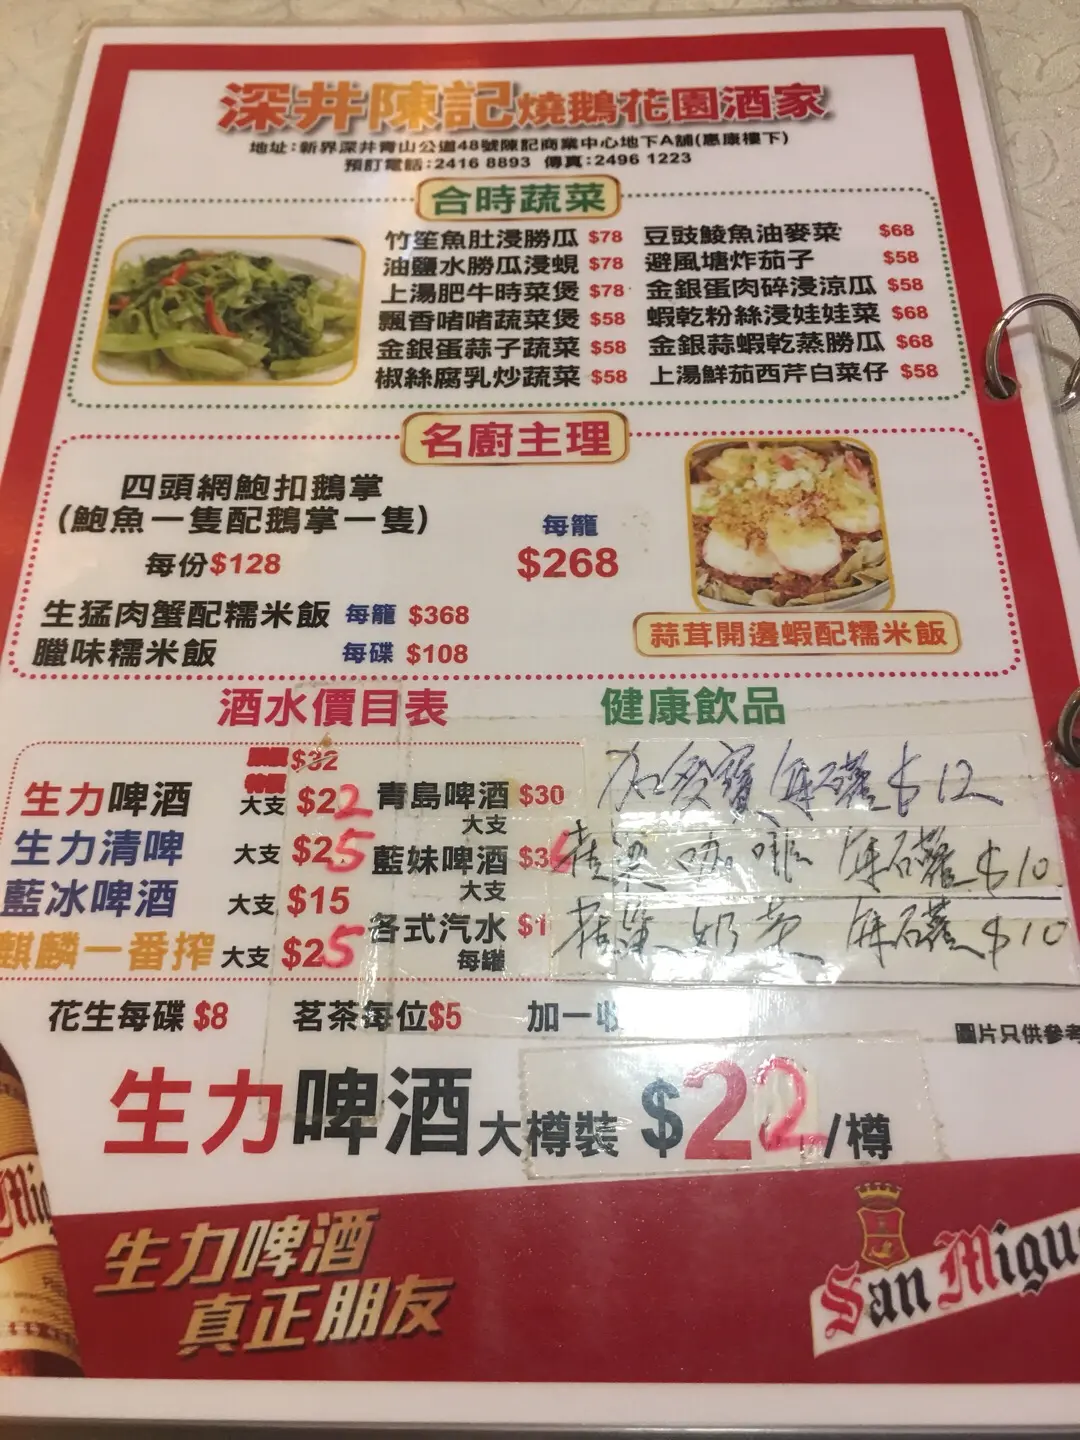 深井陳記燒鵝花園酒家
地址:新界深井青山公道48號陳記商業中心地下A舖(惠康樓下)
預訂電話:2416 8893 傳真:2496 1223
合時蔬菜
竹笙魚肚浸勝瓜 $78
油鹽水勝瓜浸蜆 $78
上湯肥牛時菜煲 $78
飄香啫啫蔬菜煲 $58
金銀蛋蒜子蔬菜 $58
椒絲腐乳炒蔬菜 $58
豆豉鯪魚油麥菜 $68
避風塘炸茄子 $58
金銀蛋肉碎浸涼瓜 $58
蝦乾粉絲浸娃娃菜 $68
金銀蒜蝦乾蒸勝瓜 $68
上湯鮮茄西芹白菜仔 $58
名廚主理
四頭網鮑扣鵝掌
(鮑魚一隻配鵝掌一隻)
每份$128
生猛肉蟹配糯米飯 每籠 $368
臘味糯米飯 每碟 $108
每籠
$268
蒜茸開邊蝦配糯米飯
酒水價目表
$32
生力啤酒 特價 大支 $22
生力清啤 大支 $25
藍冰啤酒 大支 $15
麒麟一番搾 大支 $25
青島啤酒 $30
大支
藍妹啤酒 $3
大支
各式汽水 $1
每罐
健康飲品
加多寶 每罐 $12
咖啡 每罐 $10
奶茶 每罐 $10
花生每碟 $8 茗茶每位$5 加一收
圖片只供參考
生力啤酒 大樽裝 $22/樽
生力啤酒
真正朋友
San Migu